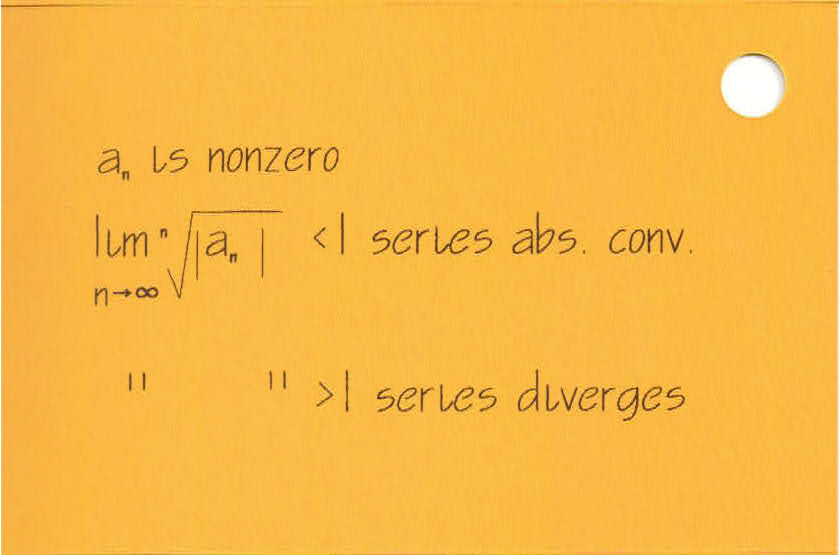 aₙ is nonzero
lim n→∞ ⁿ√|aₙ| <1 series abs. conv.
" " >1 series diverges